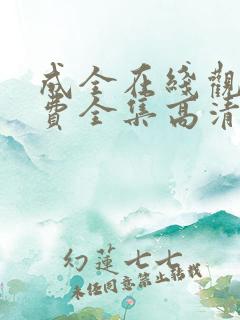 成全在綫觀
費全集高清
幻蓮七七
未经同意禁止转载